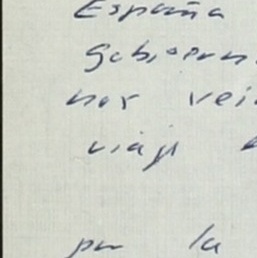 España
Gobiern
por vei
viaje
por la